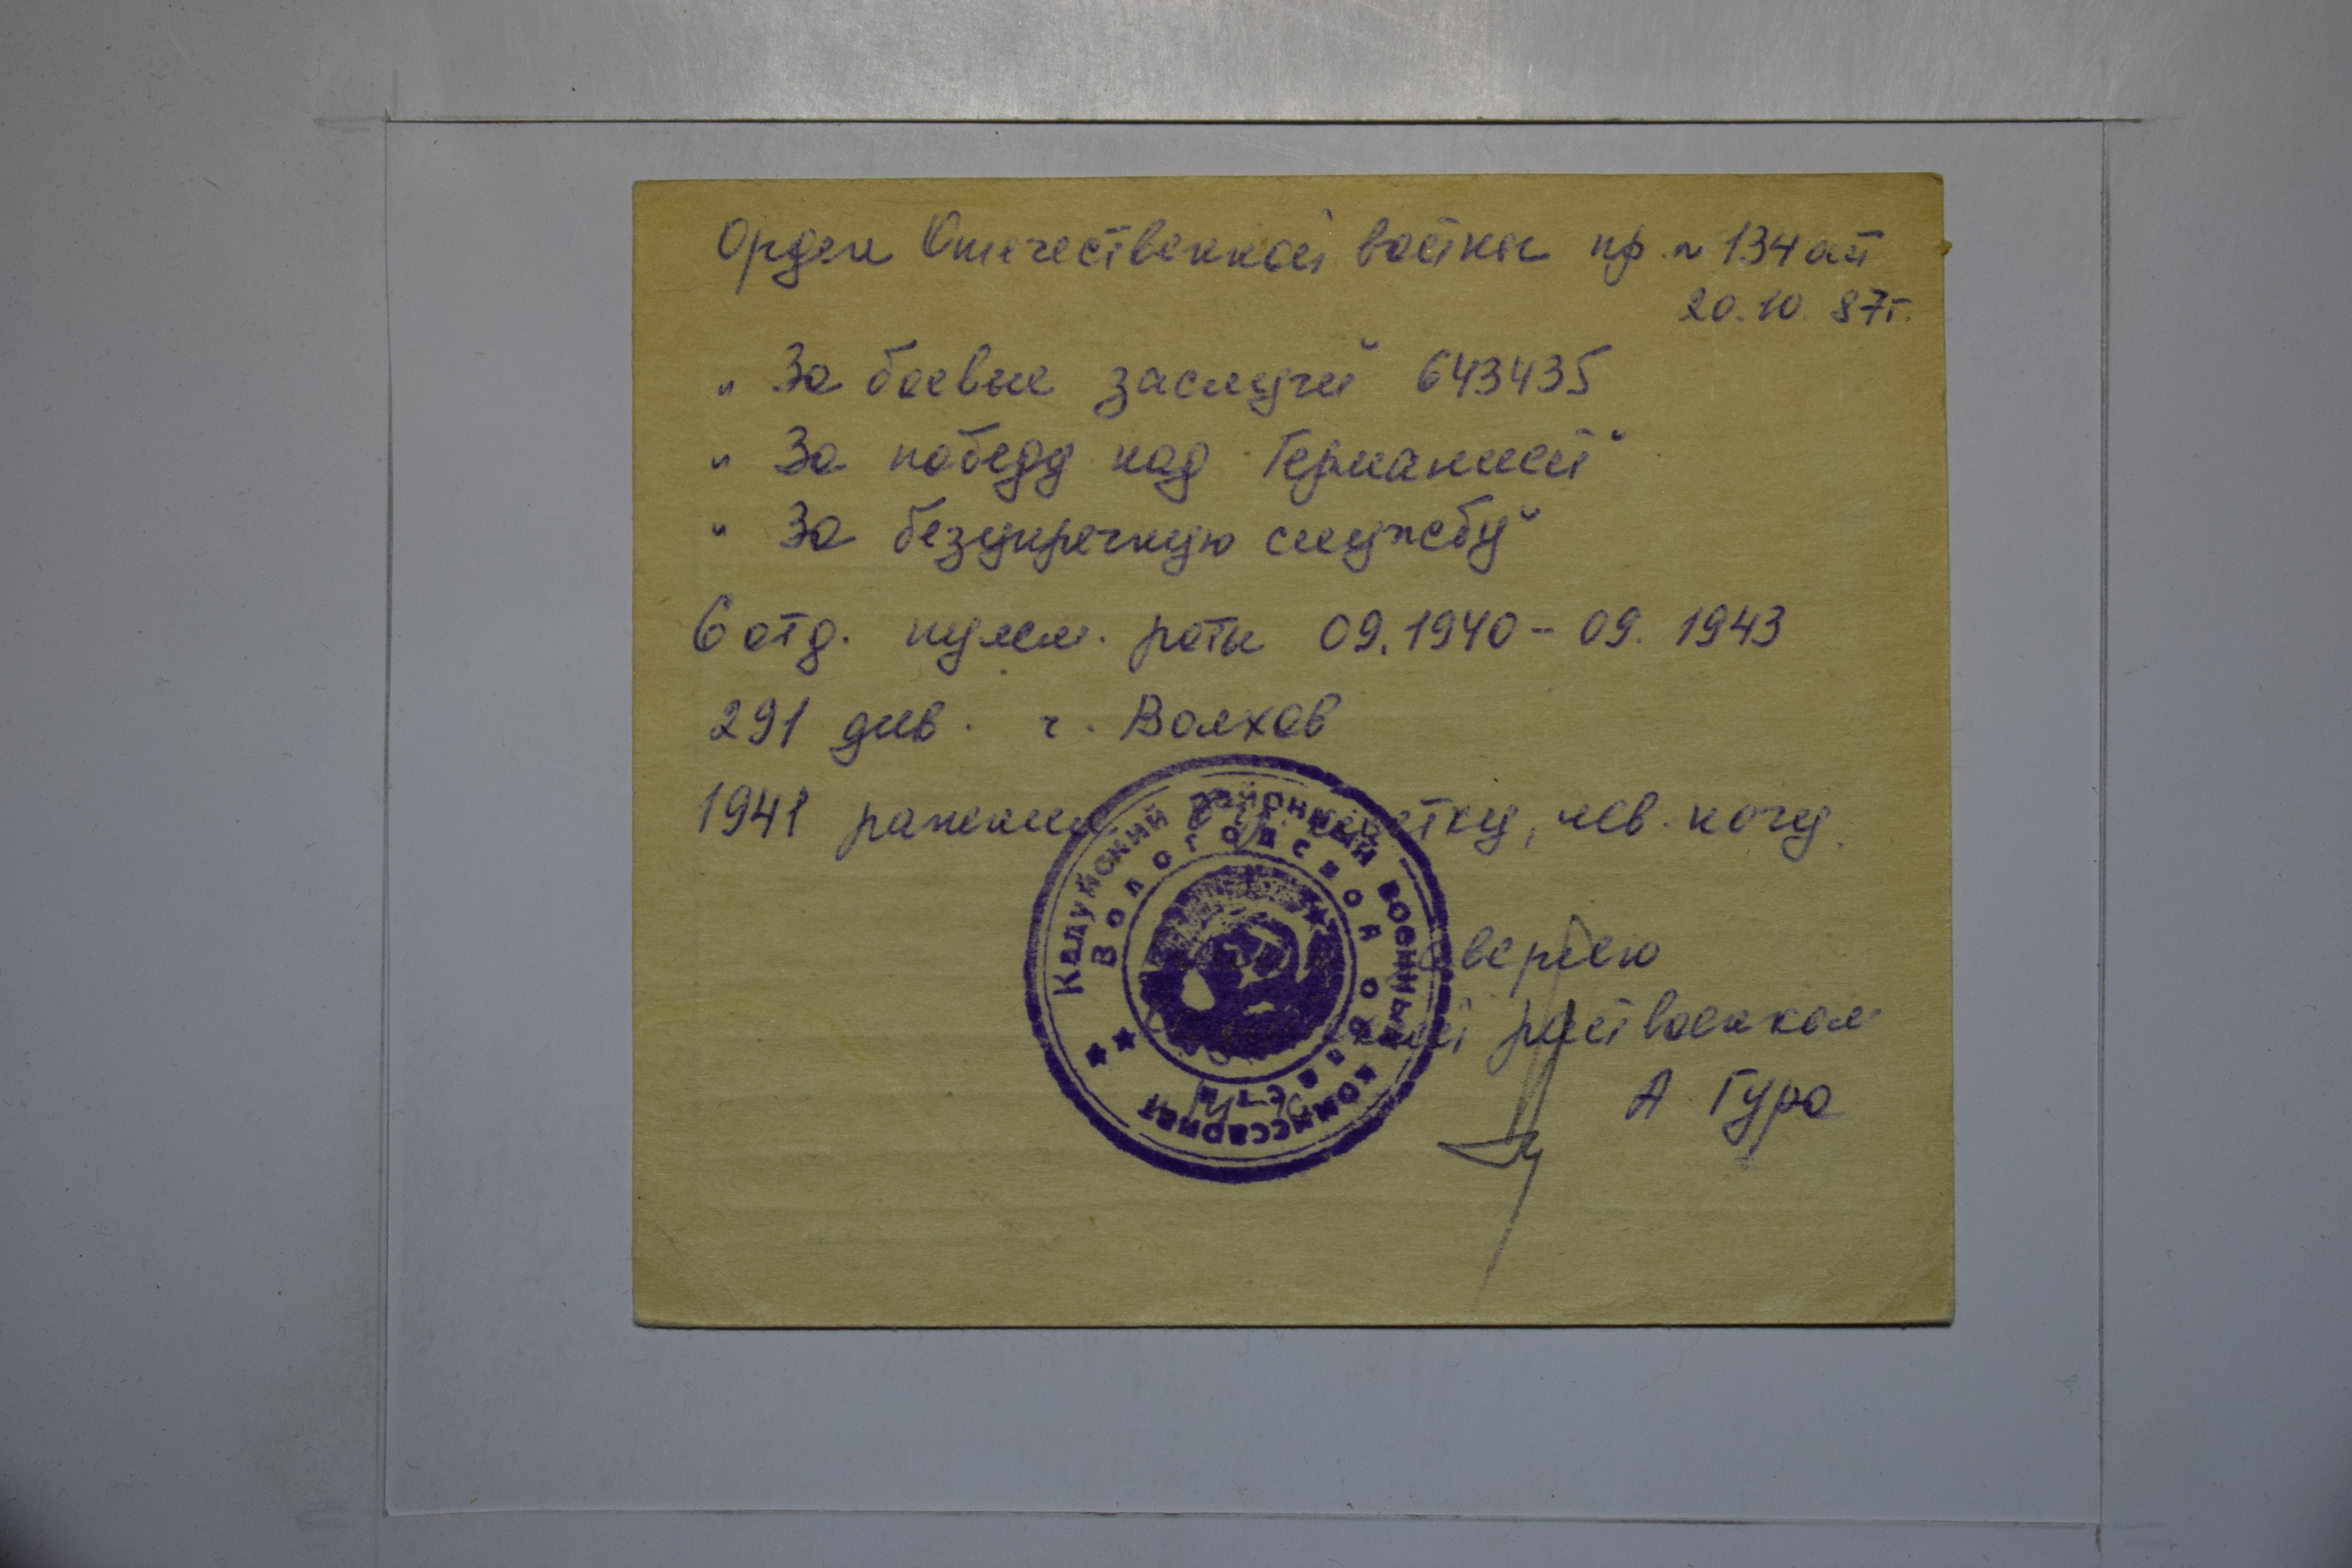 Орден Отечественной войны пр. № 134 от
20.10.87г.
„За боевые заслуги" 643435
„За победу над Германией"
„За безупречную службу"
6 отд. пулем. роты 09.1940 - 09.1943
291 див. г. Волхов
1941 ранения в клетку, лев. ногу.
верню
райвоенком
А. Гура
Кадуйский районный военный комиссариат
Вологодской области